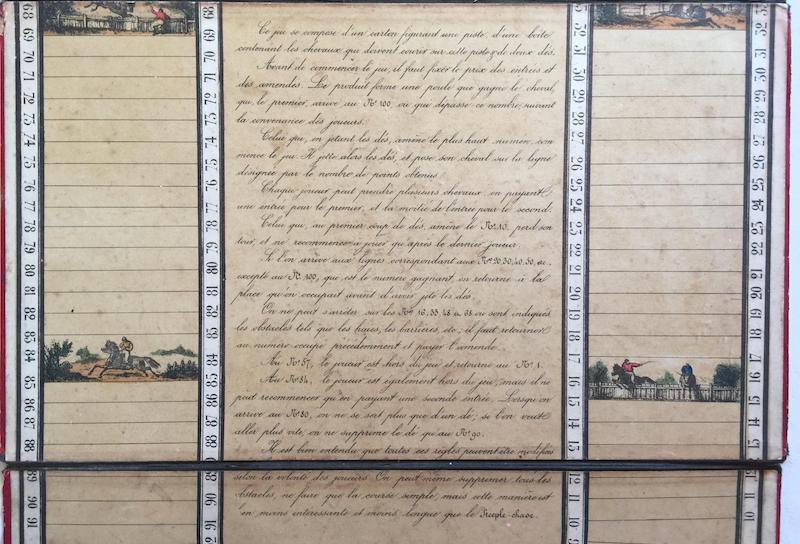 68
69
70
71
72
73
74
75
76
77
78
79
80
81
82
83
84
85
86
87
88
89
90
91
68
69
70
71
72
73
74
75
76
77
78
79
80
81
82
83
84
85
86
87
88
89
90
91
Ce jeu se compose d'un carton figurant une piste, d'une boîte
contenant les chevaux qui doivent courir sur cette piste & de deux dés.
Avant de commencer le jeu, il faut fixer le prix des entrées et
des amendes. Le produit forme une poule que gagne le cheval,
qui, le premier, arrive au Nº 100, ou qui dépasse ce nombre, suivant
la convenance des joueurs.
Celui qui, en jetant les dés, amène le plus haut numéro, com
mence le jeu. Il jette alors les dés, et pose son cheval sur la ligne
désignée par le nombre de points obtenus.
Chaque joueur peut prendre plusieurs chevaux, en payant
une entrée pour le premier, et la moitié de l'entrée pour le second.
Celui qui, au premier coup de dés, amène le Nº 10, perd son
tour, et ne recommence à jouer qu'après le dernier joueur.
Si l'on arrive aux lignes correspondant aux Nos 20, 30, 40, 50, etc.
excepté au Nº 100, qui est le numéro gagnant, on retourne à la
place qu'on occupait avant d'avoir jeté les dés.
On ne peut s'arrêter sur les Nos 16, 33, 48 & 68 où sont indiqués
les obstacles tels que les haies, les barrières, etc., il faut retourner
au numéro occupé précédemment et payer l'amende.
Au Nº 57, le joueur est hors du jeu et retourne au Nº 1.
Au Nº 84, le joueur est également hors du jeu, mais il ne
peut recommencer qu'en payant une seconde entrée. Lorsqu'on
arrive au Nº 80, on ne se sert plus que d'un dé; si l'on veut
aller plus vite, on ne supprime le dé qu'au Nº 90.
Il est bien entendu que toutes ces règles peuvent être modifiées
selon la volonté des joueurs. On peut même supprimer tous les
obstacles, ne faire que la course simple, mais cette manière est
en moins intéressante et moins longue que le Steeple-chase.
32
31
30
29
28
27
26
25
24
23
22
21
20
19
18
17
16
15
14
13
12
11
10
32
31
30
29
28
27
26
25
24
23
22
21
20
19
18
17
16
15
14
13
12
11
10